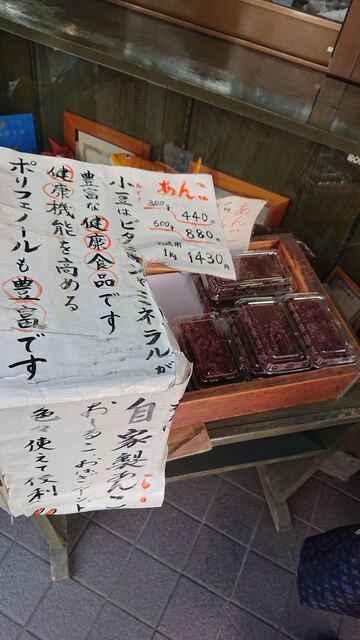 あんこ
300g 440円
600g 880円
1kg 1430円
小豆はビタミンやミネラルが
豊富な健康食品です
健康機能を高める
ポリフェノールも豊富です
自家製あんこ
おしるこ おはぎ
色々使えて便利
あんこ